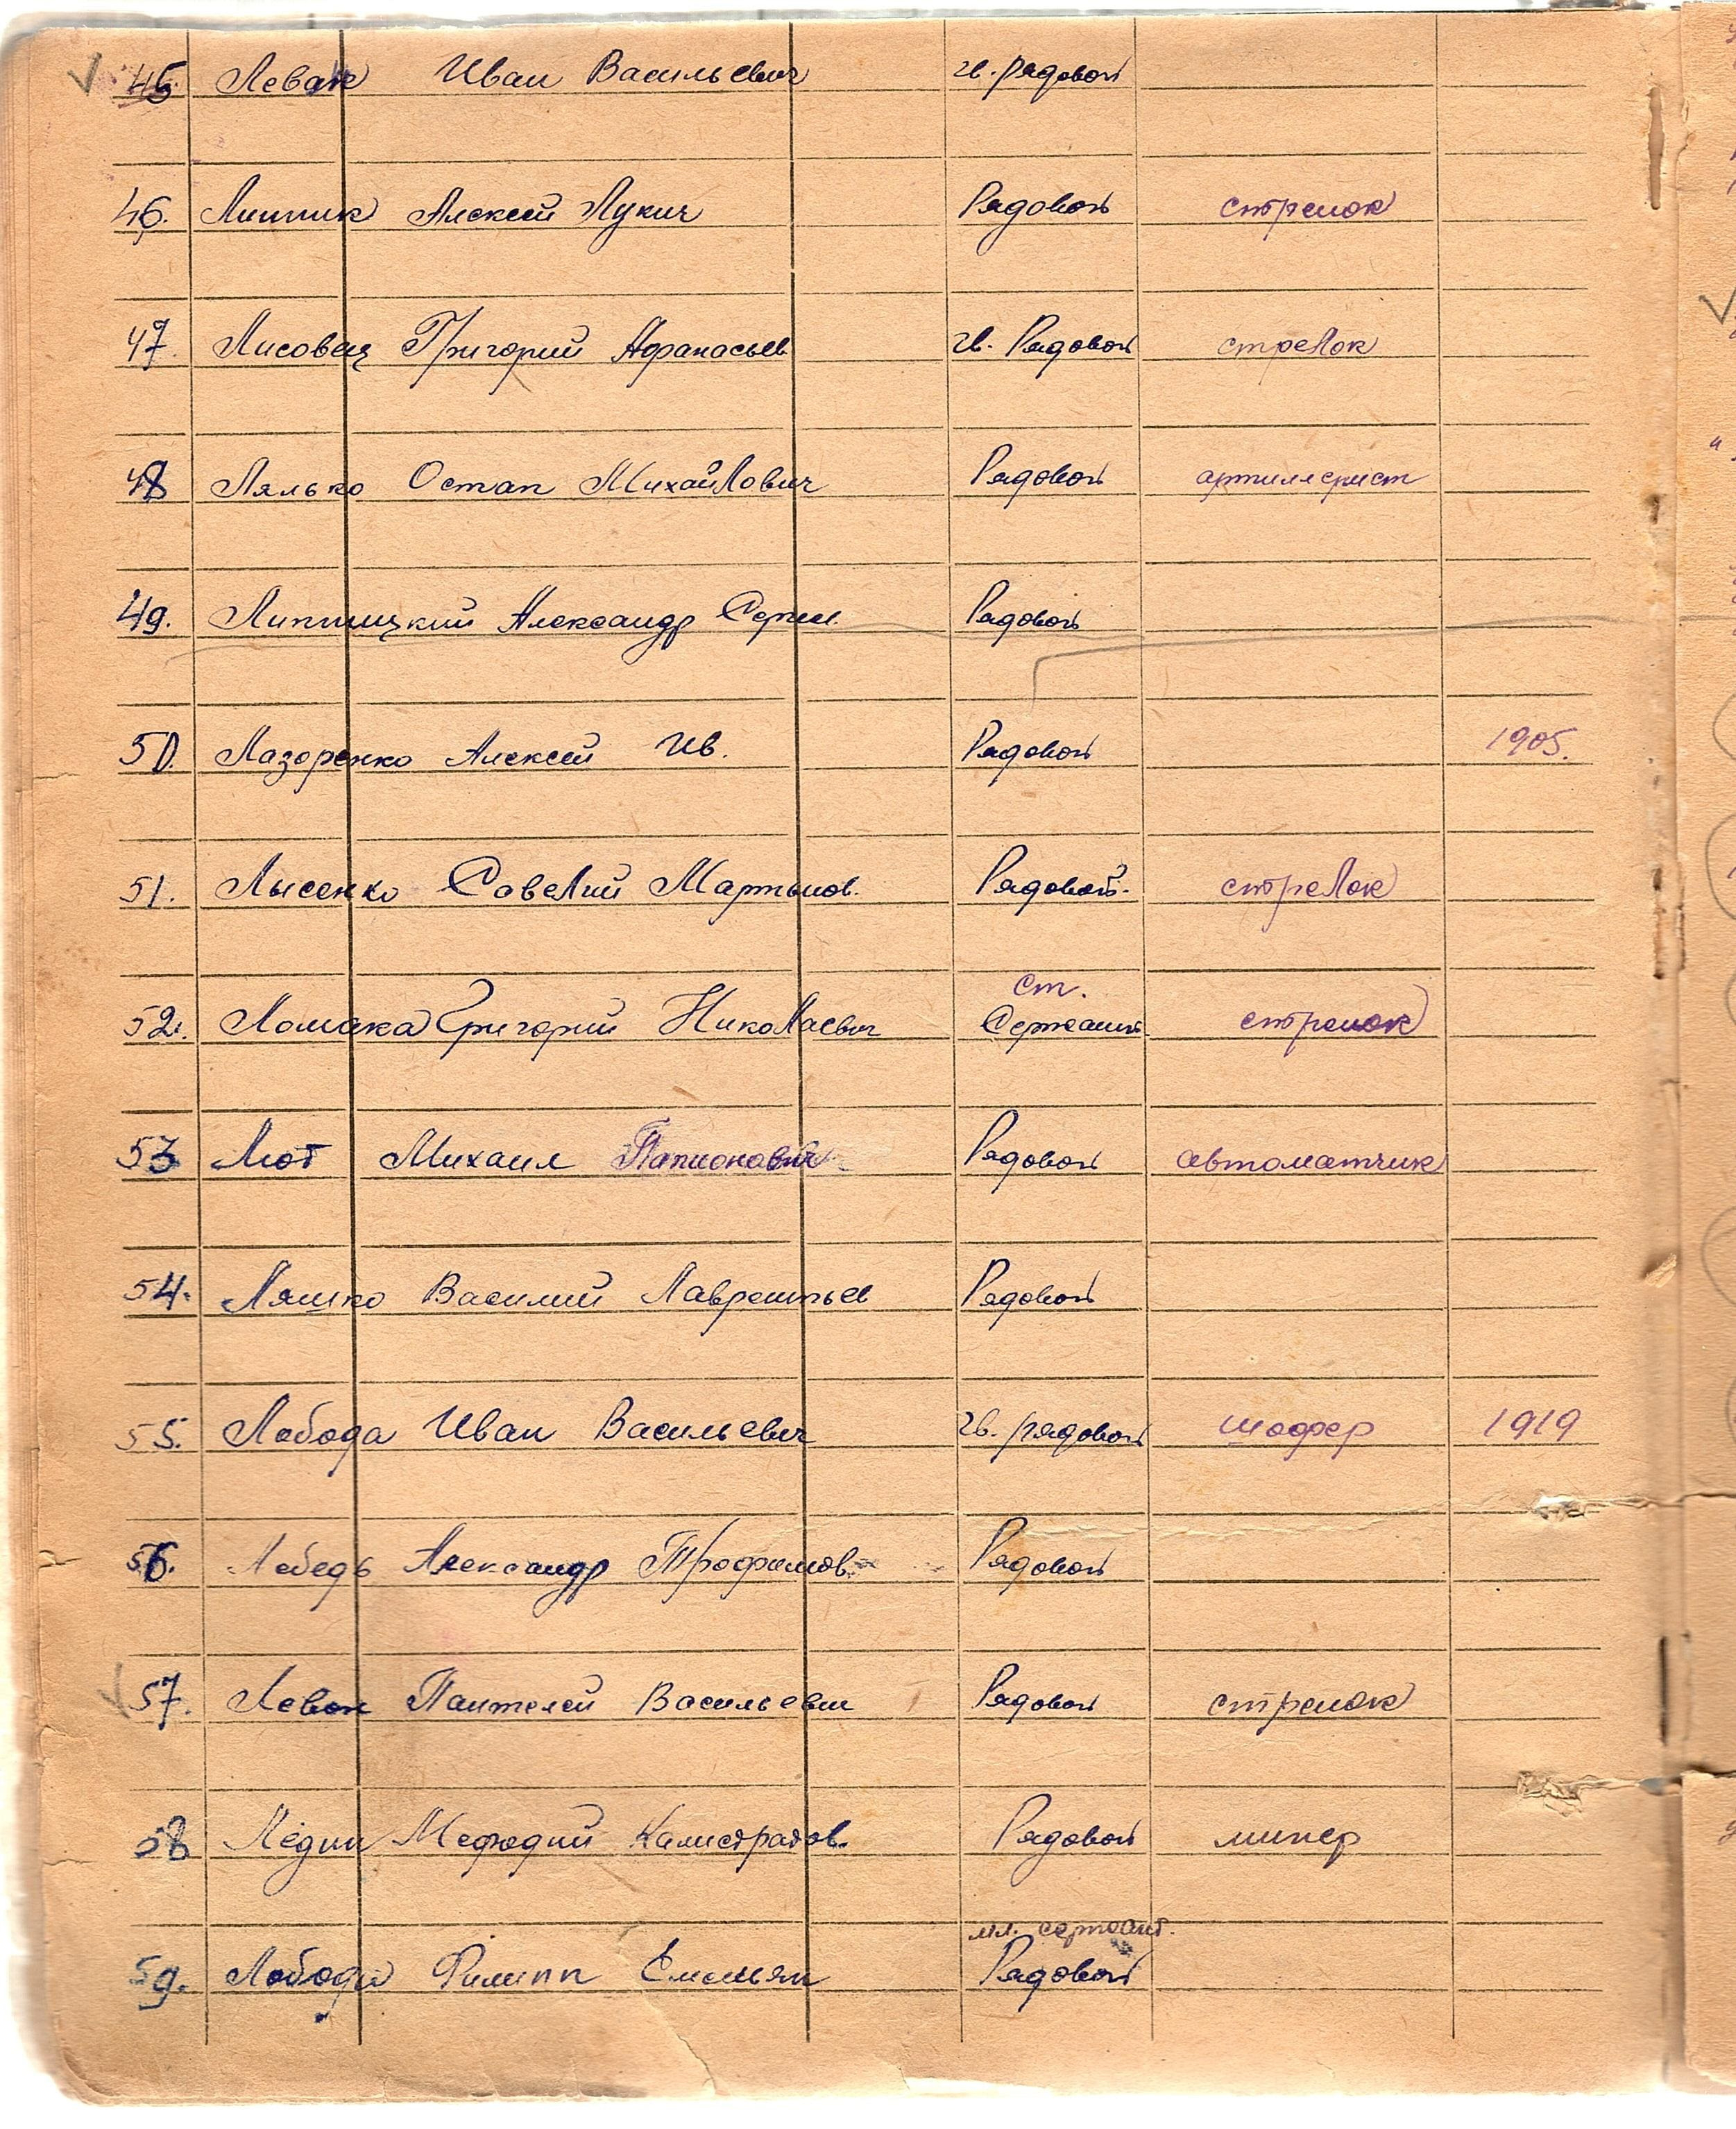 45. Левак Иван Васильевич гв. рядовой
46. Липпик Алексей Лукич Рядовой стрелок
47. Лисовец Григорий Афанасьев гв. Рядовой стрелок
48 Лялько Остап Михайлович Рядовой артиллерист
49. Александр Сергеев Рядовой
50. Лазоренко Алексей Ив. Рядовой 1905.
51. Лысенко Савелий Мартынов. Рядовой. стрелок
ст.
52. Ломака Григорий Николаевич Сержант стрелок
53 Лют Михаил Рядовой автоматчик
54. Ляшко Василий Лаврентьев Рядовой
55. Лобода Иван Васильевич гв. рядовой шофер 1919
56. Лебедь Александр Трофимов. Рядовой
57. Левон Пантелей Васильевич Рядовой стрелок
58 Ледин Мефодий Калистратов. Рядовой минер
мл. сержант.
59. Лобода Филипп Емельян Рядовой